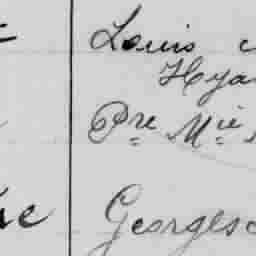 Louis
Hya
Pre Mie
Georges